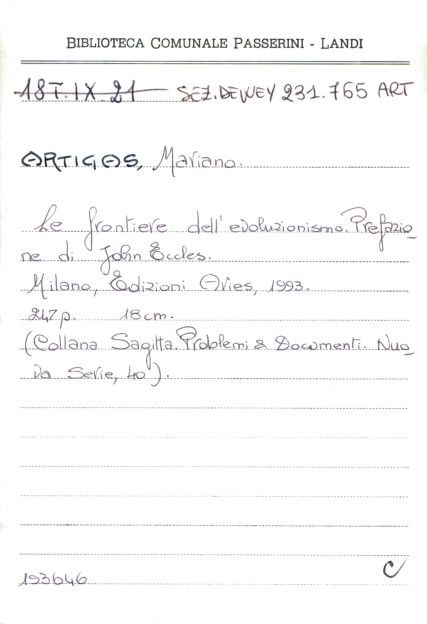 BIBLIOTECA COMUNALE PASSERINI - LANDI
18T.IX.21 SEZ.DEWEY 231.765 ART
ARTIGAS, Mariano.
Le frontiere dell'evoluzionismo. Prefazio_
ne di John Eccles.
Milano, Edizioni Ares, 1993.
247 p. 18 cm.
(Collana Sagitta. Problemi & Documenti. Nuo_
va Serie, 40).
193646 C